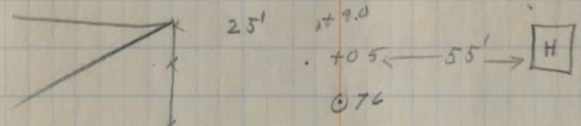 25' .+9.0
+05 55' H
76